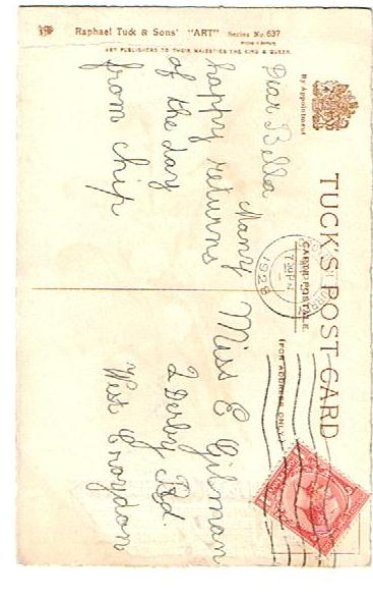 Raphael Tuck & Sons' "ART" Series No. 637
ART PUBLISHERS TO THEIR MAJESTIES THE KING & QUEEN.
By Appointment
TUCK'S POST CARD
CARTE POSTALE
(FOR ADDRESS ONLY)
1928
Dear Bella
Many
happy returns
of the day
from Chip
Miss E Gilman
2 Derby Rd.
West Croydon